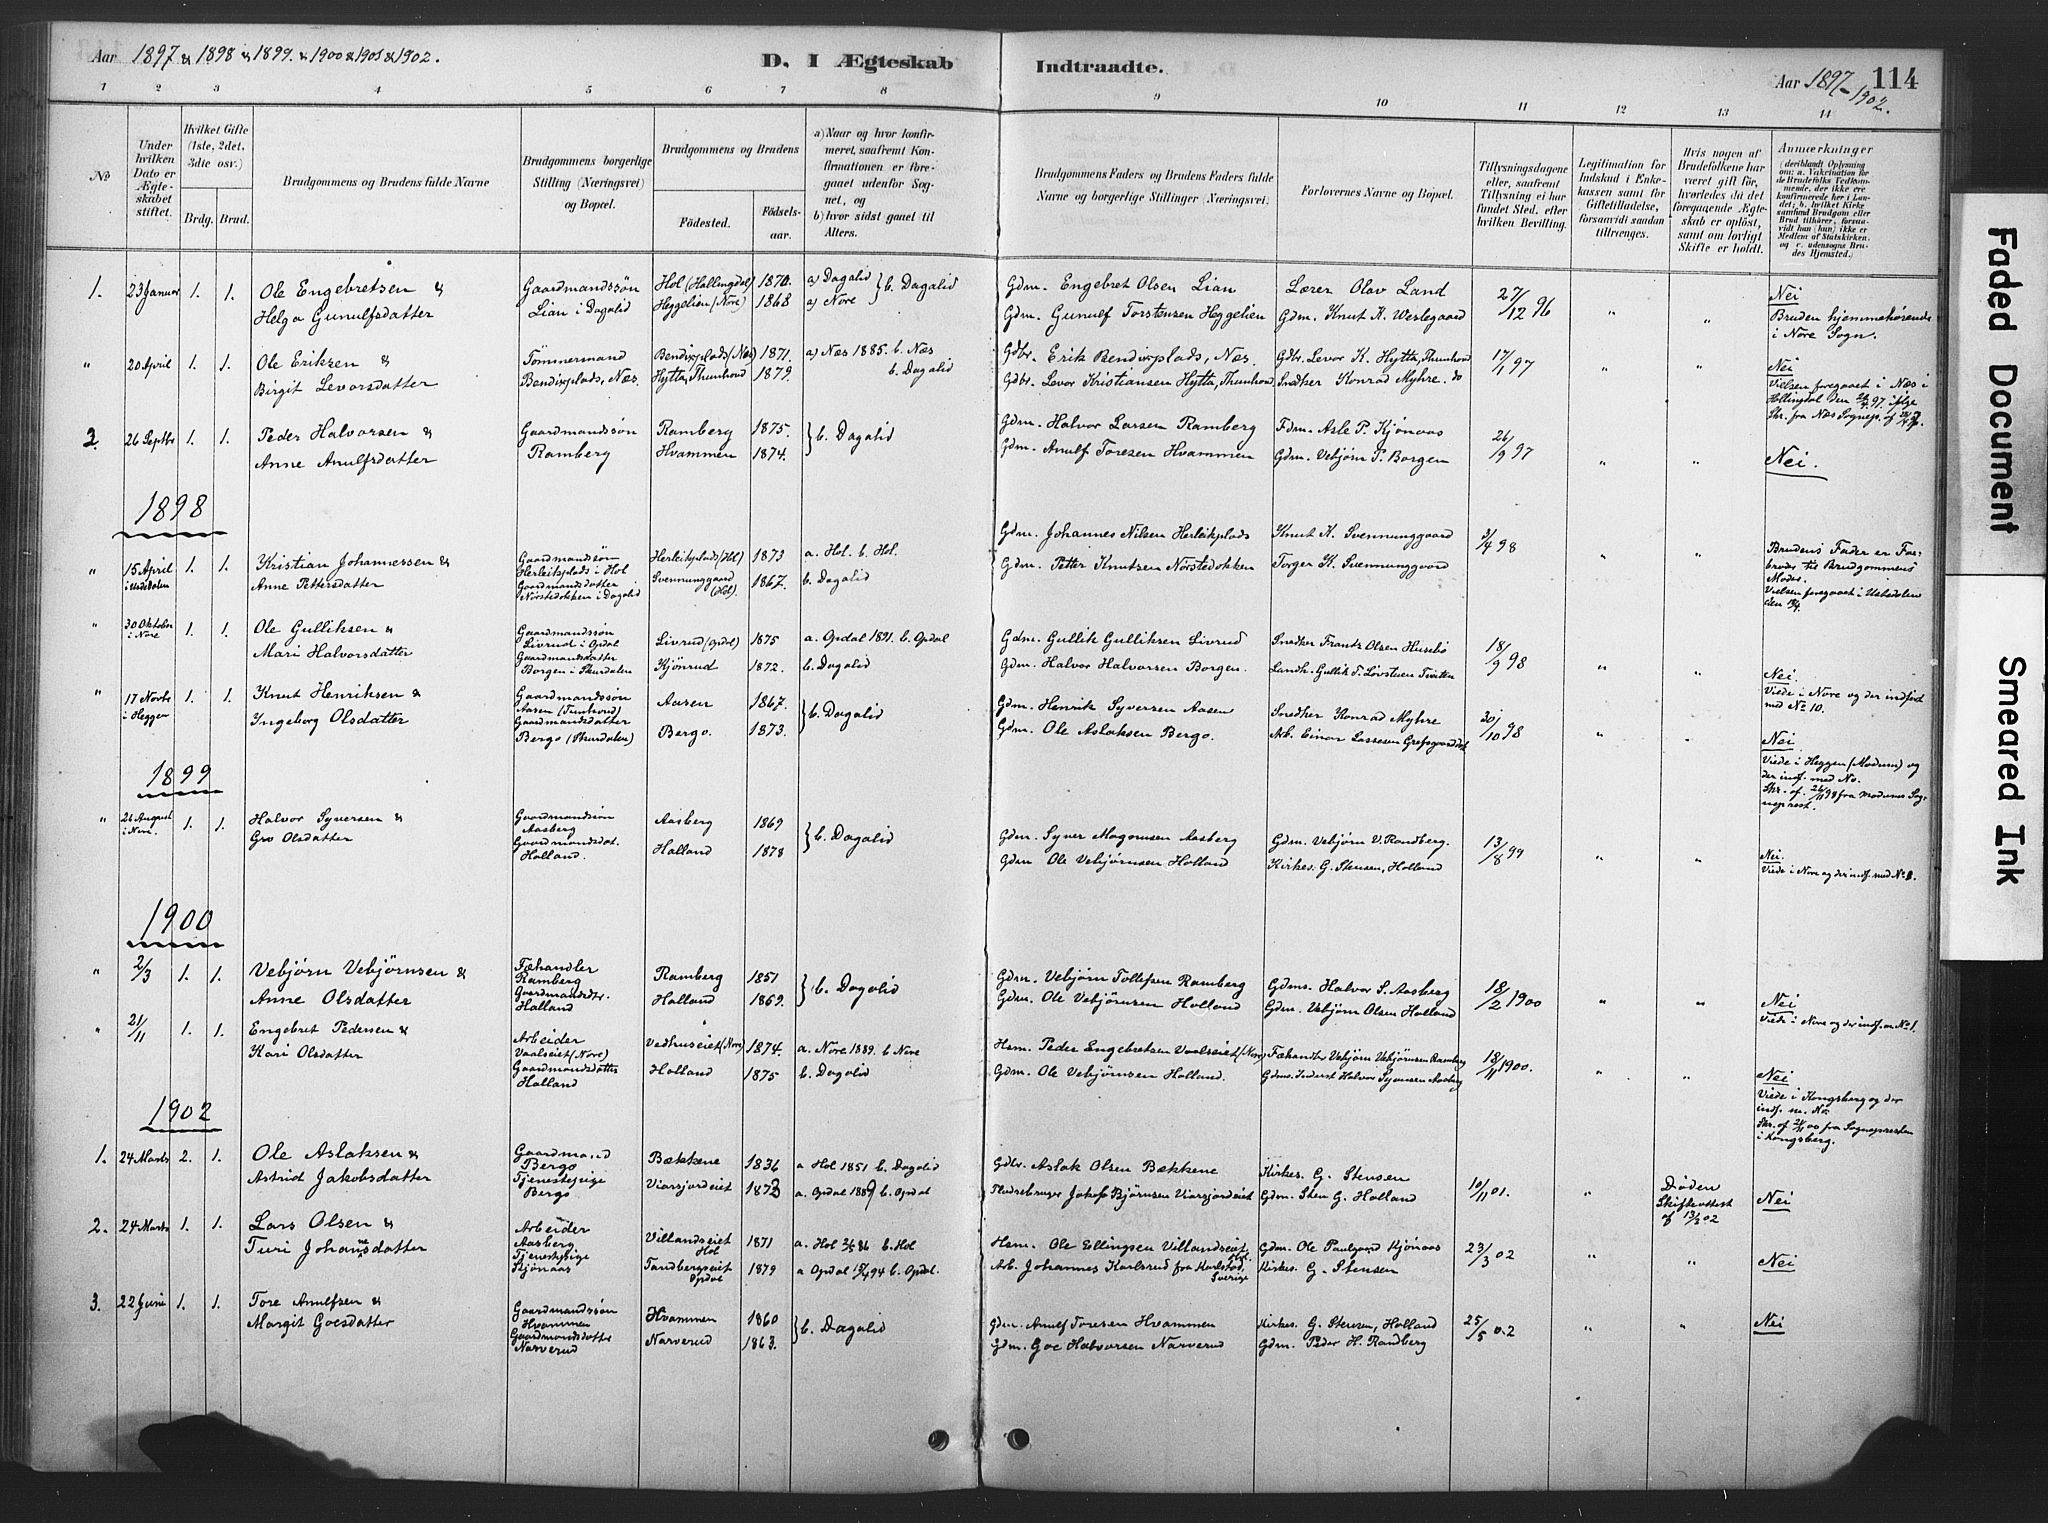 Aar 1897 & 1898 & 1899. & 1900 & 1901 & 1902.
D. I Ægteskab Indtraadte.
Aar 1897-1902.
114
1 2 3 4 5 6 7 8 9 10 11 12 13 14
No
Under hvilken Dato er Ægteskabet stiftet.
Hvilket Gifte (1ste, 2det, 3die osv.)
Brdg. Brud.
Brudgommens og Brudens fulde Navne
Brudgommens borgerlige Stilling (Næringsvei) og Bopæl.
Brudgommens og Brudens
Fødested. Fødselsaar.
a) Naar og hvor konfirmeret, saafremt Konfirmationen er foregaaet udenfor Sognet, og
b) hvor sidst gaaet til Alters.
Brudgommens Faders og Brudens Faders fulde Navne og borgerlige Stillinger (Næringsvei)
Forlovernes Navne og Bopæl.
Tillysningsdagene eller, saafremt Tillysning ei har fundet Sted, efter hvilken Bevilling.
Legitimation for Indskud i Enkekassen samt for Giftetilladelse, forsaavidt saadan tiltrænges.
Hvis nogen af Brudefolkene har været gift før, hvorledes da det foregaaende Ægteskab er opløst, samt om lovligt Skifte er holdt.
Anmærkninger
(deriblandt Oplysning om: a. Vakcination for de Brudefolks Vedkommende, der ikke ere konfirmerede her i Landet; b. hvilket Kirkesamfund Brudgom eller Brud tilhører, forsaavidt han (hun) ikke er Medlem af Statskirken, og c. udensogns Brudes Hjemsted.)
1. 23 Januar 1. 1. Ole Engebretsen & Gaardmandssøn Hol (Hallingdal) 1870. a) Dagalid } b. Dagalid Gdm. Engebret Olsen Lian Lærer Olav Land 27/12 96 " " Nei
Helga Gunulfsdatter Lian i Dagalid Heggelien (Nore) 1868 a) Nore Gdm. Gunulf Torstensen Heggelien Gdm. Knut K. Weslegaard Bruden hjemmehørende i Nore Sogn.
" 20 April 1. 1. Ole Eriksen & Tømmermand Bendixplads (Næs) 1871. a) Næs 1885. b. Næs Gdbr. Erik Bendixplads, Næs. Gdbr. Levor K. Hytta, Thunhovd 17/1 97 " " Nei
Birgit Levorsdatter Bendixplads, Næs. Hytta, Thunhovd 1879. b. Dagalid Gdbr. Levor Kristiansen Hytta, Thunhovd Snedker Konrad Myhre. do
Vielsen foregaaet i Næs i Hallingdal den 20/4 97 ifølge Skr. fra Næs Sognep. af
2. 26 Septbr 1. 1. Peder Halvorsen & Gaardmandssøn Ramberg 1875. } b. Dagalid Gdm. Halvor Larsen Ramberg Fdm. Asle P. Kjønaas 26/9 97 " " Nei.
Anne Arnulfsdatter Ramberg Hvammen 1874. Gdm. Arnulf Toresen Hvammen Gdm. Vebjørn S. Borgen
1898
" 15 April i Ustedalen 1. 1. Kristian Johannessen & Gaardmandssøn Herleikplads i Hol Herleikplads (Hol) 1873 a. Hol. b. Hol. Gdm. Johannes Nilsen Herleikplads Knut K. Svennunggaard 3/4 98 " " Brudens Fader er Farbroder til Brudgommens Moder.
Anne Pettersdatter Gaardmandsdatter Nørstedokken i Dagalid Svennunggaard (Hol). 1867. b. Dagalid Gdm. Petter Knutsen Nørstedokken Torger K. Svennunggaard Vielsen foregaaet i Ustedalen den 15/4.
" 30 Oktober i Nore 1. 1. Ole Gulliksen & Gaardmandssøn Livrud i Opdal Livrud (Opdal) 1875 a. Opdal 1891. b. Opdal Gdm. Gullik Gulliksen Livrud Snedker Frantz Olsen Husebø 18/9 98 " " Nei.
Mari Halvorsdatter Gaardmandsdatter Borgen i Skurdalen Kjønrud 1872. b. Dagalid Gdm. Halvor Halvorsen Borgen. Landh. Gullik T. Løvstuen Tveiten Viede i Nore og der indført med No 10.
" 17 Novbr i Heggen 1. 1. Knut Henriksen & Gaardmandssøn Aasen (Tunhovd) Aasen 1867. } b. Dagalid Gdm. Henrik Syversen Aasen Snedker Konrad Myhre 30/10 98 " " Nei
Ingeborg Olsdatter Gaardmandsdatter Bergo (Skurdalen) Bergo. 1873. Gdm. Ole Aslaksen Bergo. Arb. Einar Lassesen Grefsgaard Viede i Heggen (Modum) og der indf. med No.
Skr. af. 26/11 98 fra Modums Sogneprest.
1899
" 26 August i Nore. 1. 1. Halvor Syversen & Gaardmandssøn Aasberg Aasberg 1869 } b. Dagalid Gdm. Syver Magnusen Aasberg Gdm. Vebjørn V. Randberg. 13/8 99 " " Nei.
Gro Olsdatter Gaardmandsdat. Holland. Holland 1878 Gdm Ole Vebjørnsen Holland Kirkes. G. Stensen, Holland Viede i Nore og der indf. med No 8.
1900
" 2/3 1. 1. Vebjørn Vebjørnsen & Fæhandler Ramberg Ramberg 1851 } b. Dagalid Gdm. Vebjørn Tollefsen Ramberg Gdms. Halvor S. Aasberg 18/2 1900 " " Nei
Anne Olsdatter Gaardmandsdtr. Holland Holland 1869. Gdm. Ole Vebjørnsen Holland Gdm. Vebjørn Olsen Holland Viede i Nore og der indf. som No 1.
" 21/11 1. 1. Engebret Pedersen & Arbeider Vaalseiet (Nore) Vedhuseiet (Nore) 1874. a. Nore 1889. b Nore Hsm. Peder Engebretsen Vaalseiet (Nore) Fæhandler Vebjørn Vebjørnsen Ramberg 18/11 1900. " " Nei
Kari Olsdatter Gaardmandsdatter Holland Holland 1875 b. Dagalid Gdm. Ole Vebjørnsen Holland. Gdms. Inderst Halvor Syversen Aasberg Viede i Kongsberg og der indf. m. No
Skr. af 21/11 00 fra Sognepresten i Kongsberg.
1902
1. 24 Marts 2. 1. Ole Aslaksen & Gaardmand Bergo Bækkene 1836 a Hol 1851 b. Dagalid Gdbr. Aslak Olsen Bækkene Kirkes. G. Stensen 10/11 01. " Døden Skifteattest af 13/2 02 Nei
Astrid Jakobsdatter Tjenestepige Bergo Viarsjordeiet 1873 a. Opdal 1889 b. Opdal Pladsebruger Jakob Bjørnsen Viarsjordeiet Gdm. Sten G. Holland
2. 24 Marts 1. 1. Lars Olsen & Arbeider Aasberg Villandseiet Hol 1871 a. Hol 2/5 86 b. Hol Hsm. Ole Ellingsen Villandseiet Hol. Gdm. Ole Paulgaard Kjønaas 23/3 02 " " Nei
Turi Johannesdatter Tjenestepige Kjønaas Tandbergseiet Opdal 1879 a Opdal 15/9 94 b. Opdal. Arb. Johannes Karlsrud fra Karlstad, Sverige Kirkes. G. Stensen
3. 22 Juni 1. 1. Tore Arnulfsen & Gaardmandssøn Hvammen Hvammen 1860 } b. Dagalid Gdm. Arnulf Toresen Hvammen Kirkes. G. Stensen, Holland 25/5 02 " " Nei
Margit Goesdatter Gaardmandsdatter Narverud Narverud 1863. Gdm. Goe Halvorsen Narverud Gdm. Peder H. Randberg
Faded Document
Smeared Ink